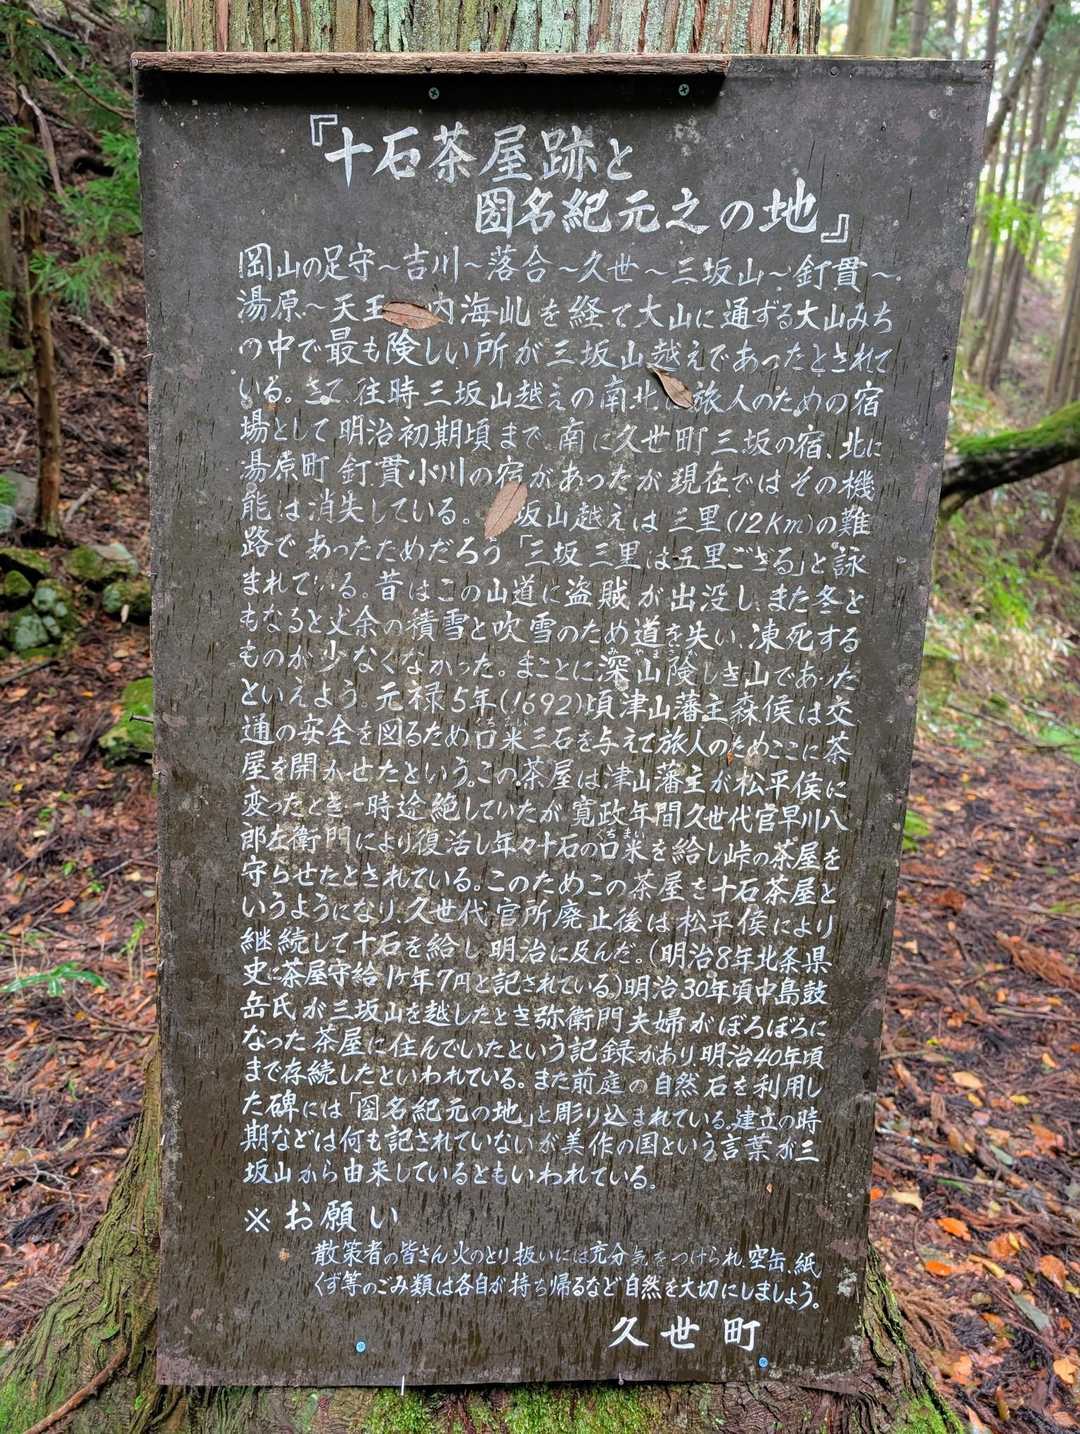 『十石茶屋跡と
圀名紀元之の地』
岡山の足守～吉川～落合～久世～三坂山～釘貫～
湯原～天王 内海乢を経て大山に通ずる大山みち
の中で最も険しい所が三坂山越えであったとされて
いる。さて、往時三坂山越えの南北 旅人のための宿
場として明治初期頃まで、南に久世町三坂の宿、北に
湯原町釘貫小川の宿があったが現在ではその機
能は消失している。 坂山越えは三里(12Km)の難
路であったためだろう「三坂三里は五里ござる」と詠
まれている。昔はこの山道に盗賊が出没し、また冬と
もなると丈余の積雪と吹雪のため道を失い、凍死する
ものが少なくなかった。まことに深山険しき山であった
といえよう。元禄5年(1692)頃津山藩主森侯は交
通の安全を図るため口米三石を与えて旅人のためここに茶
屋を開かせたという。この茶屋は、津山藩主が松平侯に
変ったとき一時途絶していたが寛政年間久世代官早川八
郎左衛門により復活し年々十石の口米を給し峠の茶屋を
守らせたとされている。このためこの茶屋を十石茶屋と
いうようになり、久世代官所廃止後は松平侯により
継続して十石を給し、明治に及んだ。(明治8年北条県
史に茶屋守給1ヶ年7円と記されている。)明治30年頃中島鼓
岳氏が三坂山を越したとき弥衛門夫婦がぼろぼろに
なった茶屋に住んでいたという記録があり明治40年頃
まで存続したといわれている。また前庭の自然石を利用し
た碑には「圀名紀元の地」と彫り込まれている。建立の時
期などは何も記されていないが美作の国という言葉が三
坂山から由来しているともいわれている。
※お願い
散策者の皆さん火のとり扱いには充分気をつけられ、空缶、紙
くず等のごみ類は各自が持ち帰るなど自然を大切にしましょう。
久世町